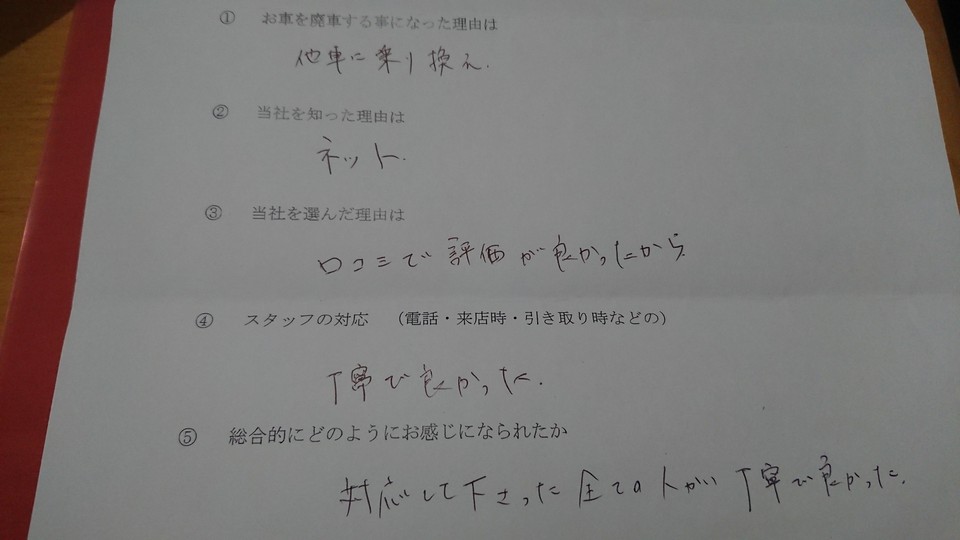 ① お車を廃車する事になった理由は
他車に乗り換え.
② 当社を知った理由は
ネット.
③ 当社を選んだ理由は
口コミで評価が良かったから
④ スタッフの対応 （電話・来店時・引き取り時などの）
丁寧で良かった.
⑤ 総合的にどのようにお感じになられたか
対応して下さった全ての人がい丁寧で良かった.